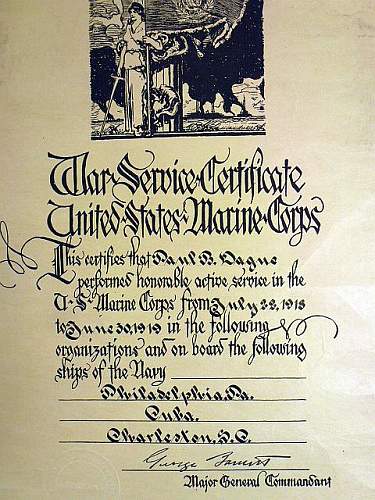 War·Service·Certificate
United·States·Marine·Corps
This certifies that Paul B. Dague
performed honorable active service in the
U·S· Marine Corps from July 22, 1918
to June 30, 1919 in the following
organizations and on board the following
ships of the Navy
Philadelphia, Pa.
Cuba.
Charleston, S.C.
George Barnett
Major General Commandant